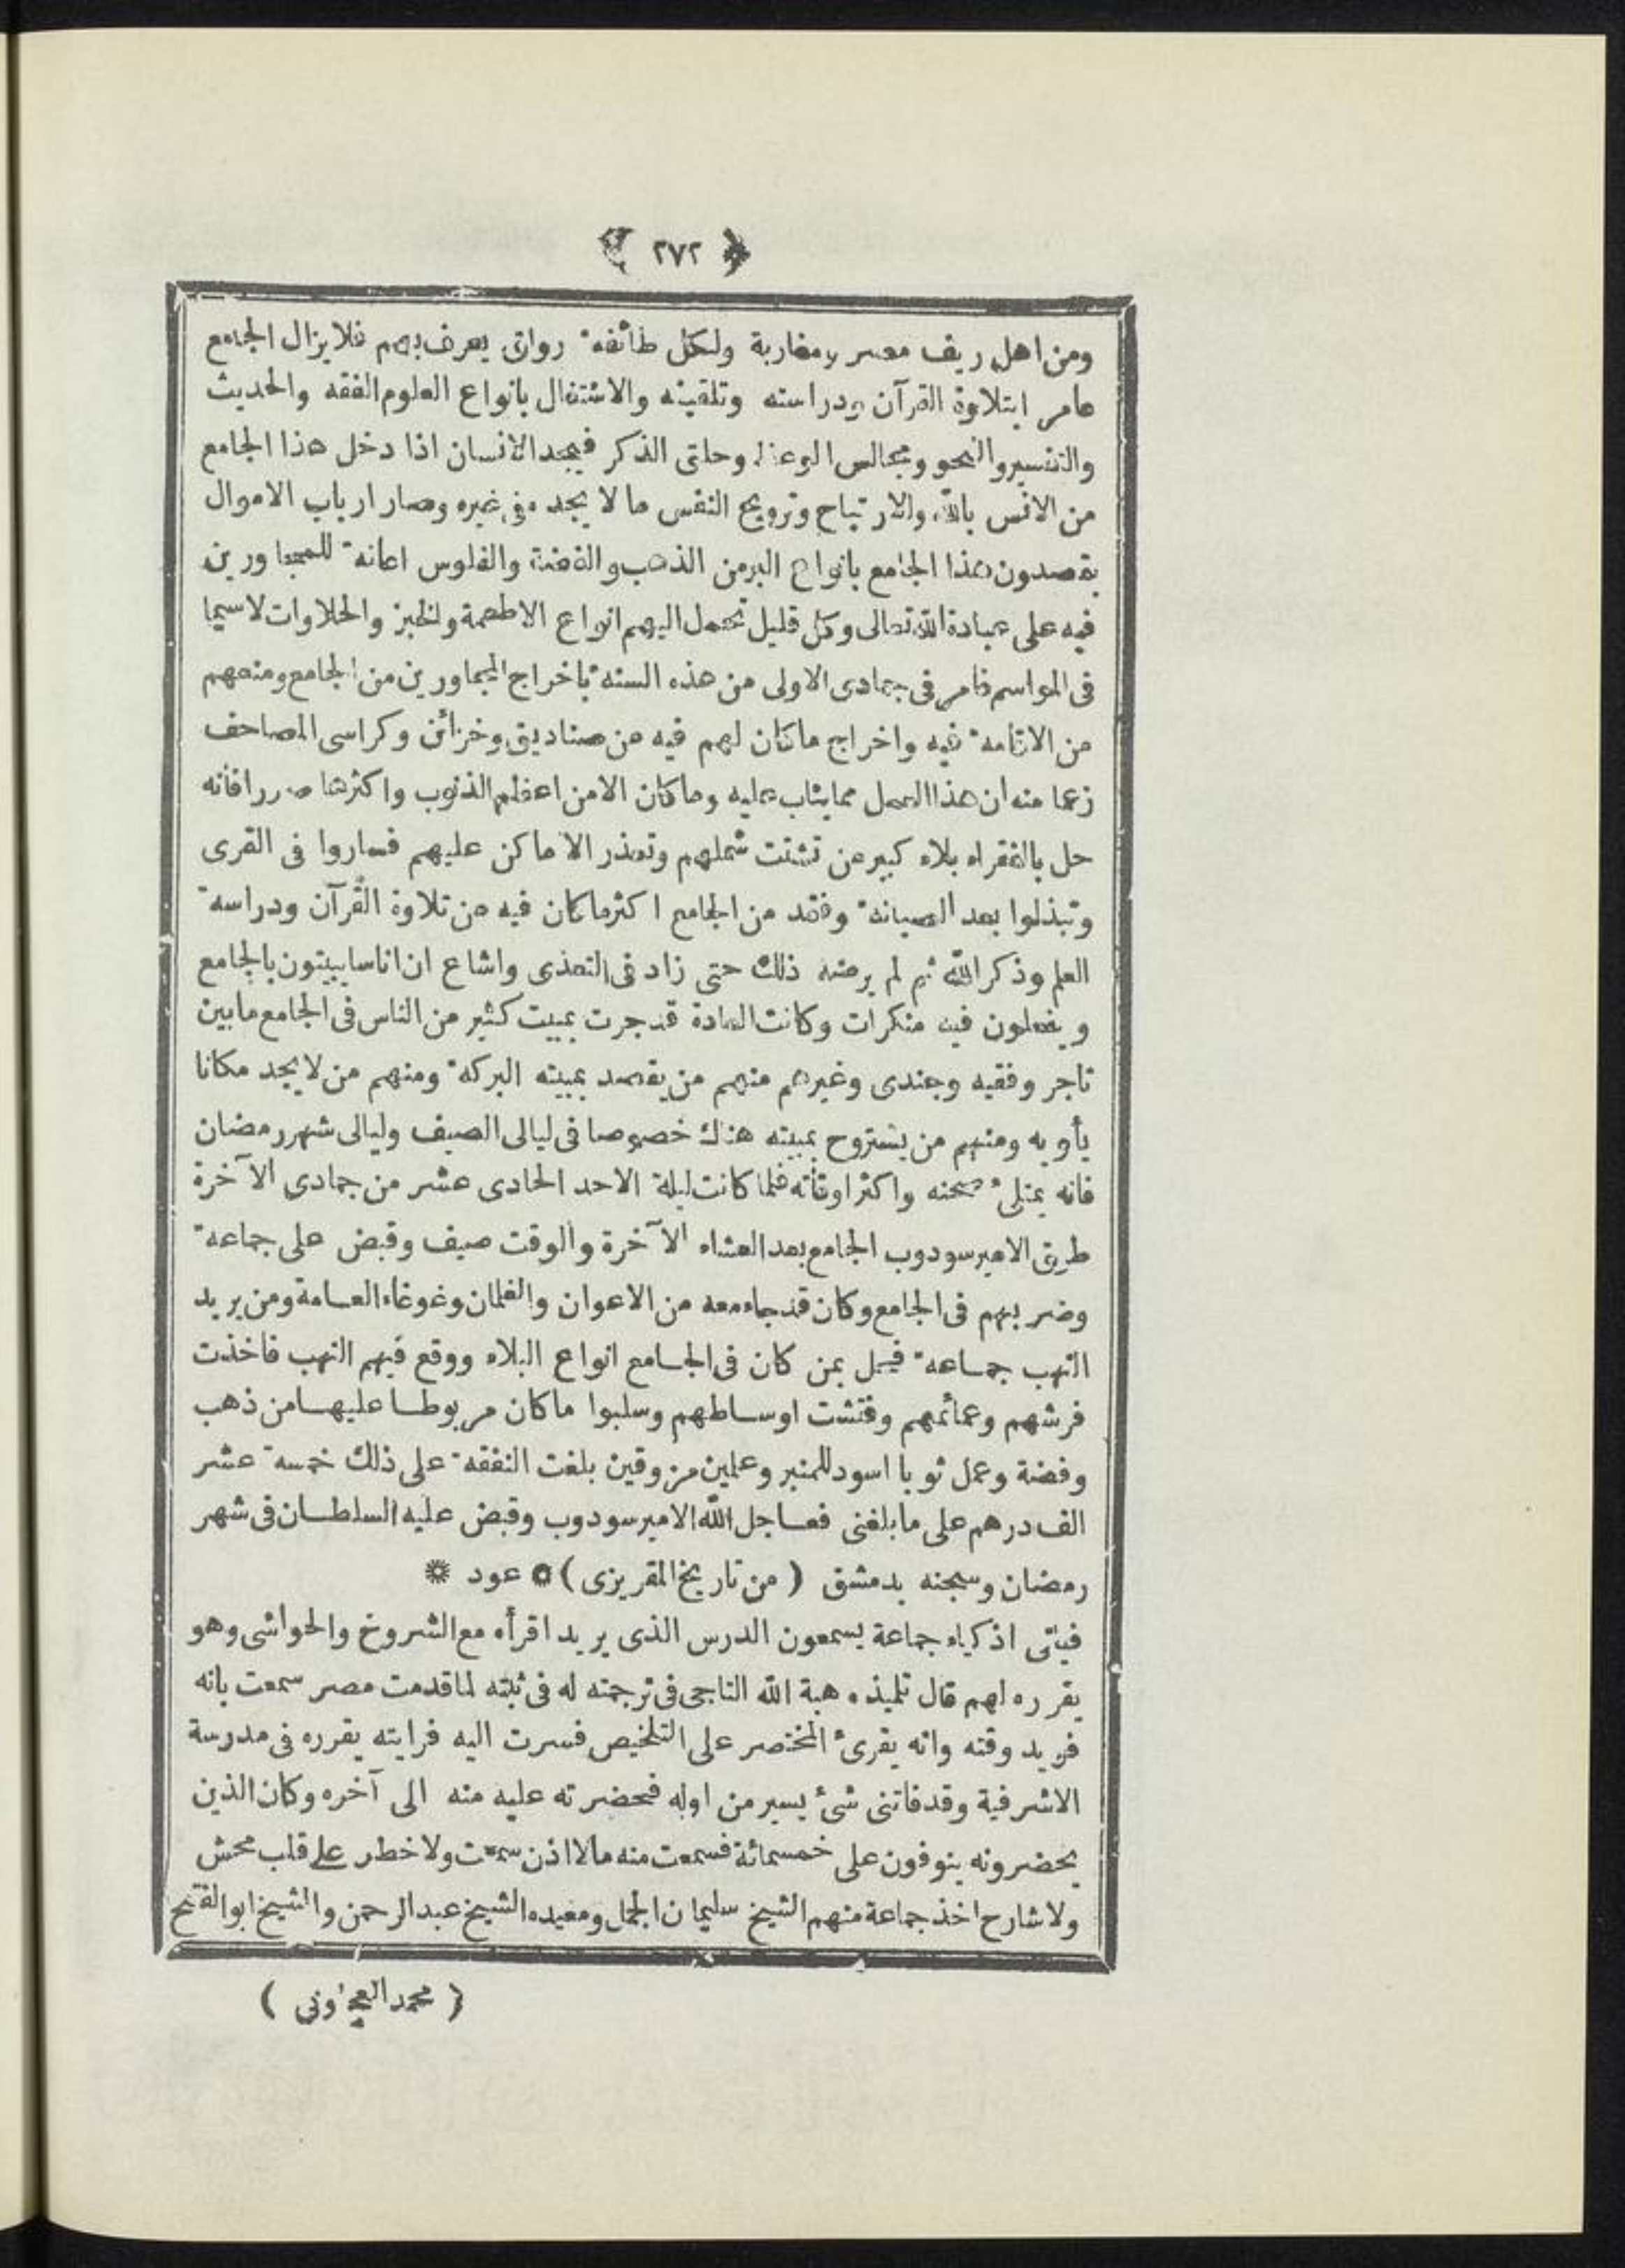 ﴿ ٢٧٢ ﴾
ومن اهل ريف مصر ومغاربة ولكل طائفة رواق يعرف بهم فلا يزال الجامع
عامرا بتلاوة القرآن ودراسته وتلقينه والاشتغال بانواع العلوم الفقه والحديث
والتفسير والنحو ومجالس الوعظ وحلق الذكر فيجد الانسان اذا دخل هذا الجامع
من الانس بالله والارتياح وترويح النفس ما لا يجده فى غيره وصار ارباب الاموال
يقصدون هذا الجامع بانواع البر من الذهب والفضة والفلوس اعانة للمجاورين
فيه على عبادة الله تعالى وكل قليل تحمل اليهم انواع الاطعمة والخبز والحلاوات لاسيما
فى المواسم فامر فى جمادى الاولى من هذه السنة باخراج المجاورين من الجامع ومنعهم
من الاقامة فيه واخراج ما كان لهم فيه من صناديق وخزائن وكراسى المصاحف
زعما منه ان هذا العمل مما يثاب عليه وما كان الا من اعظم الذنوب واكثرها ضررا فانه
حل بالفقراء بلاء كبير من تشتت شملهم وتعذر الاماكن عليهم فساروا فى القرى
وتبذلوا بعد الصيانة وفقد من الجامع اكثر ما كان فيه من تلاوة القرآن ودراسة
العلم وذكر الله ثم لم يرضه ذلك حتى زاد فى التعدى واشاع ان اناسا يبيتون بالجامع
ويفعلون فيه منكرات وكانت العادة قد جرت بمبيت كثير من الناس فى الجامع ما بين
تاجر وفقيه وجندى وغيرهم منهم من يقصد بمبيته البركة ومنهم من لا يجد مكانا
يأويه ومنهم من يستروح بمبيته هناك خصوصا فى ليالى الصيف وليالى شهر رمضان
فانه يمتلئ صحنه واكثر اوقاته فلما كانت ليلة الاحد الحادى عشر من جمادى الآخرة
طرق الامير سودوب الجامع بعد العشاء الآخرة والوقت صيف وقبض على جماعة
وضربهم فى الجامع وكان قد جاء معه من الاعوان والغلمان وغوغاء العامة ومن يريد
النهب جماعة فحل بمن كان فى الجامع انواع البلاء ووقع فيهم النهب فاخذت
فرشهم وعمائمهم وفتشت اوساطهم وسلبوا ما كان مربوطا عليها من ذهب
وفضة وعمل ثوبا اسود للمنبر وعلمين مزوقين بلغت النفقة على ذلك خمسة عشر
الف درهم على ما بلغنى فعاجل الله الامير سودوب وقبض عليه السلطان فى شهر
رمضان وسجنه بدمشق ( من تاريخ المقريزى ) * عود *
فيأتى اذكياء جماعة يسمعون الدرس الذى يريد اقرأه مع الشروح والحواشى وهو
يقرره لهم قال تلميذه هبة الله التاجى فى ترجمته له فى ثبته لما قدمت مصر سمعت بانه
فريد وقته وانه يقرئ المختصر على التلخيص فسرت اليه فرايته يقرره فى مدرسة
الاشرفية وقد فاتنى شئ يسير من اوله فحضرته عليه منه الى آخره وكان الذين
يحضرونه ينوفون على خمسمائة فسمعت منه مالا اذن سمعت ولا خطر على قلب محش
ولا شارح اخذ جماعة منهم الشيخ سليمان الجمل ومعيده الشيخ عبد الرحمن والشيخ ابو الفتح
( محمد العجلونى )